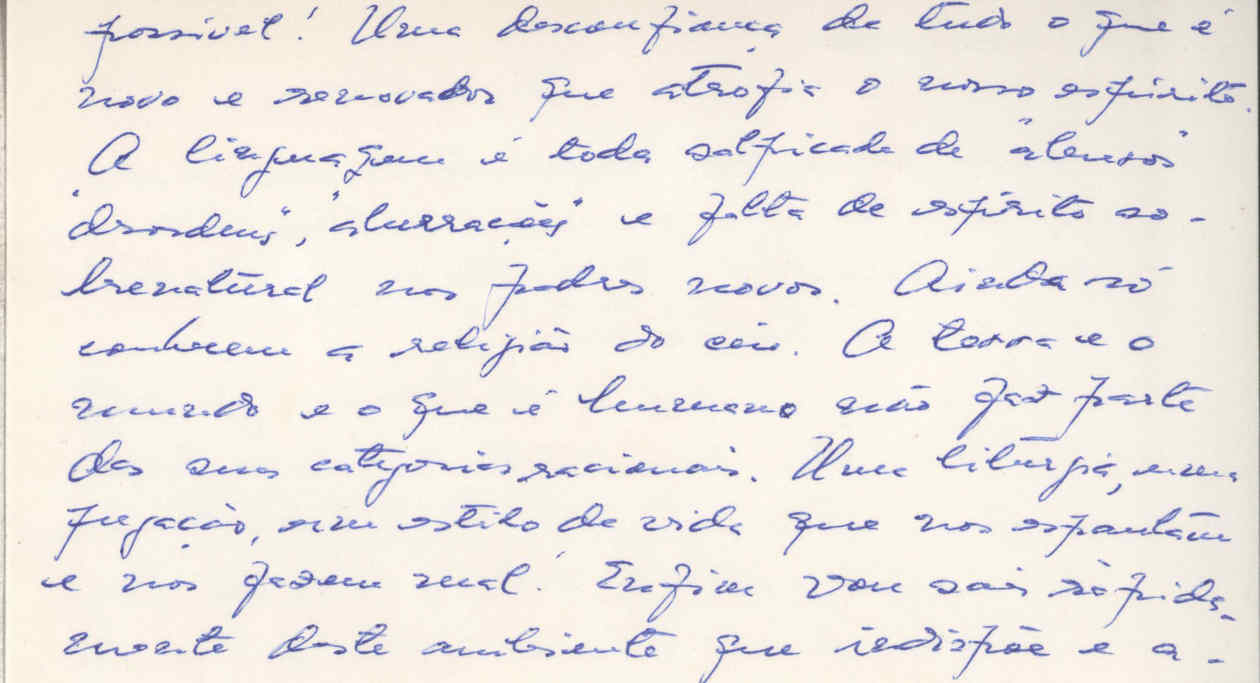 possível! Uma desconfiança de tudo o que é
novo e renovador que atrofia o nosso espírito.
A linguagem é toda salpicada de "abusos"
"desordens", "aberrações" e falta de espírito so-
brenatural nos padres novos. Ainda só
conhecem a religião do céu. A terra e o
mundo e o que é humano não faz parte
das suas categorias racionais. Uma liturgia, uma
pregação, um estilo de vida que nos espantam
e nos fazem mal. Enfim vou sair rápida-
mente deste ambiente que indispõe e a-